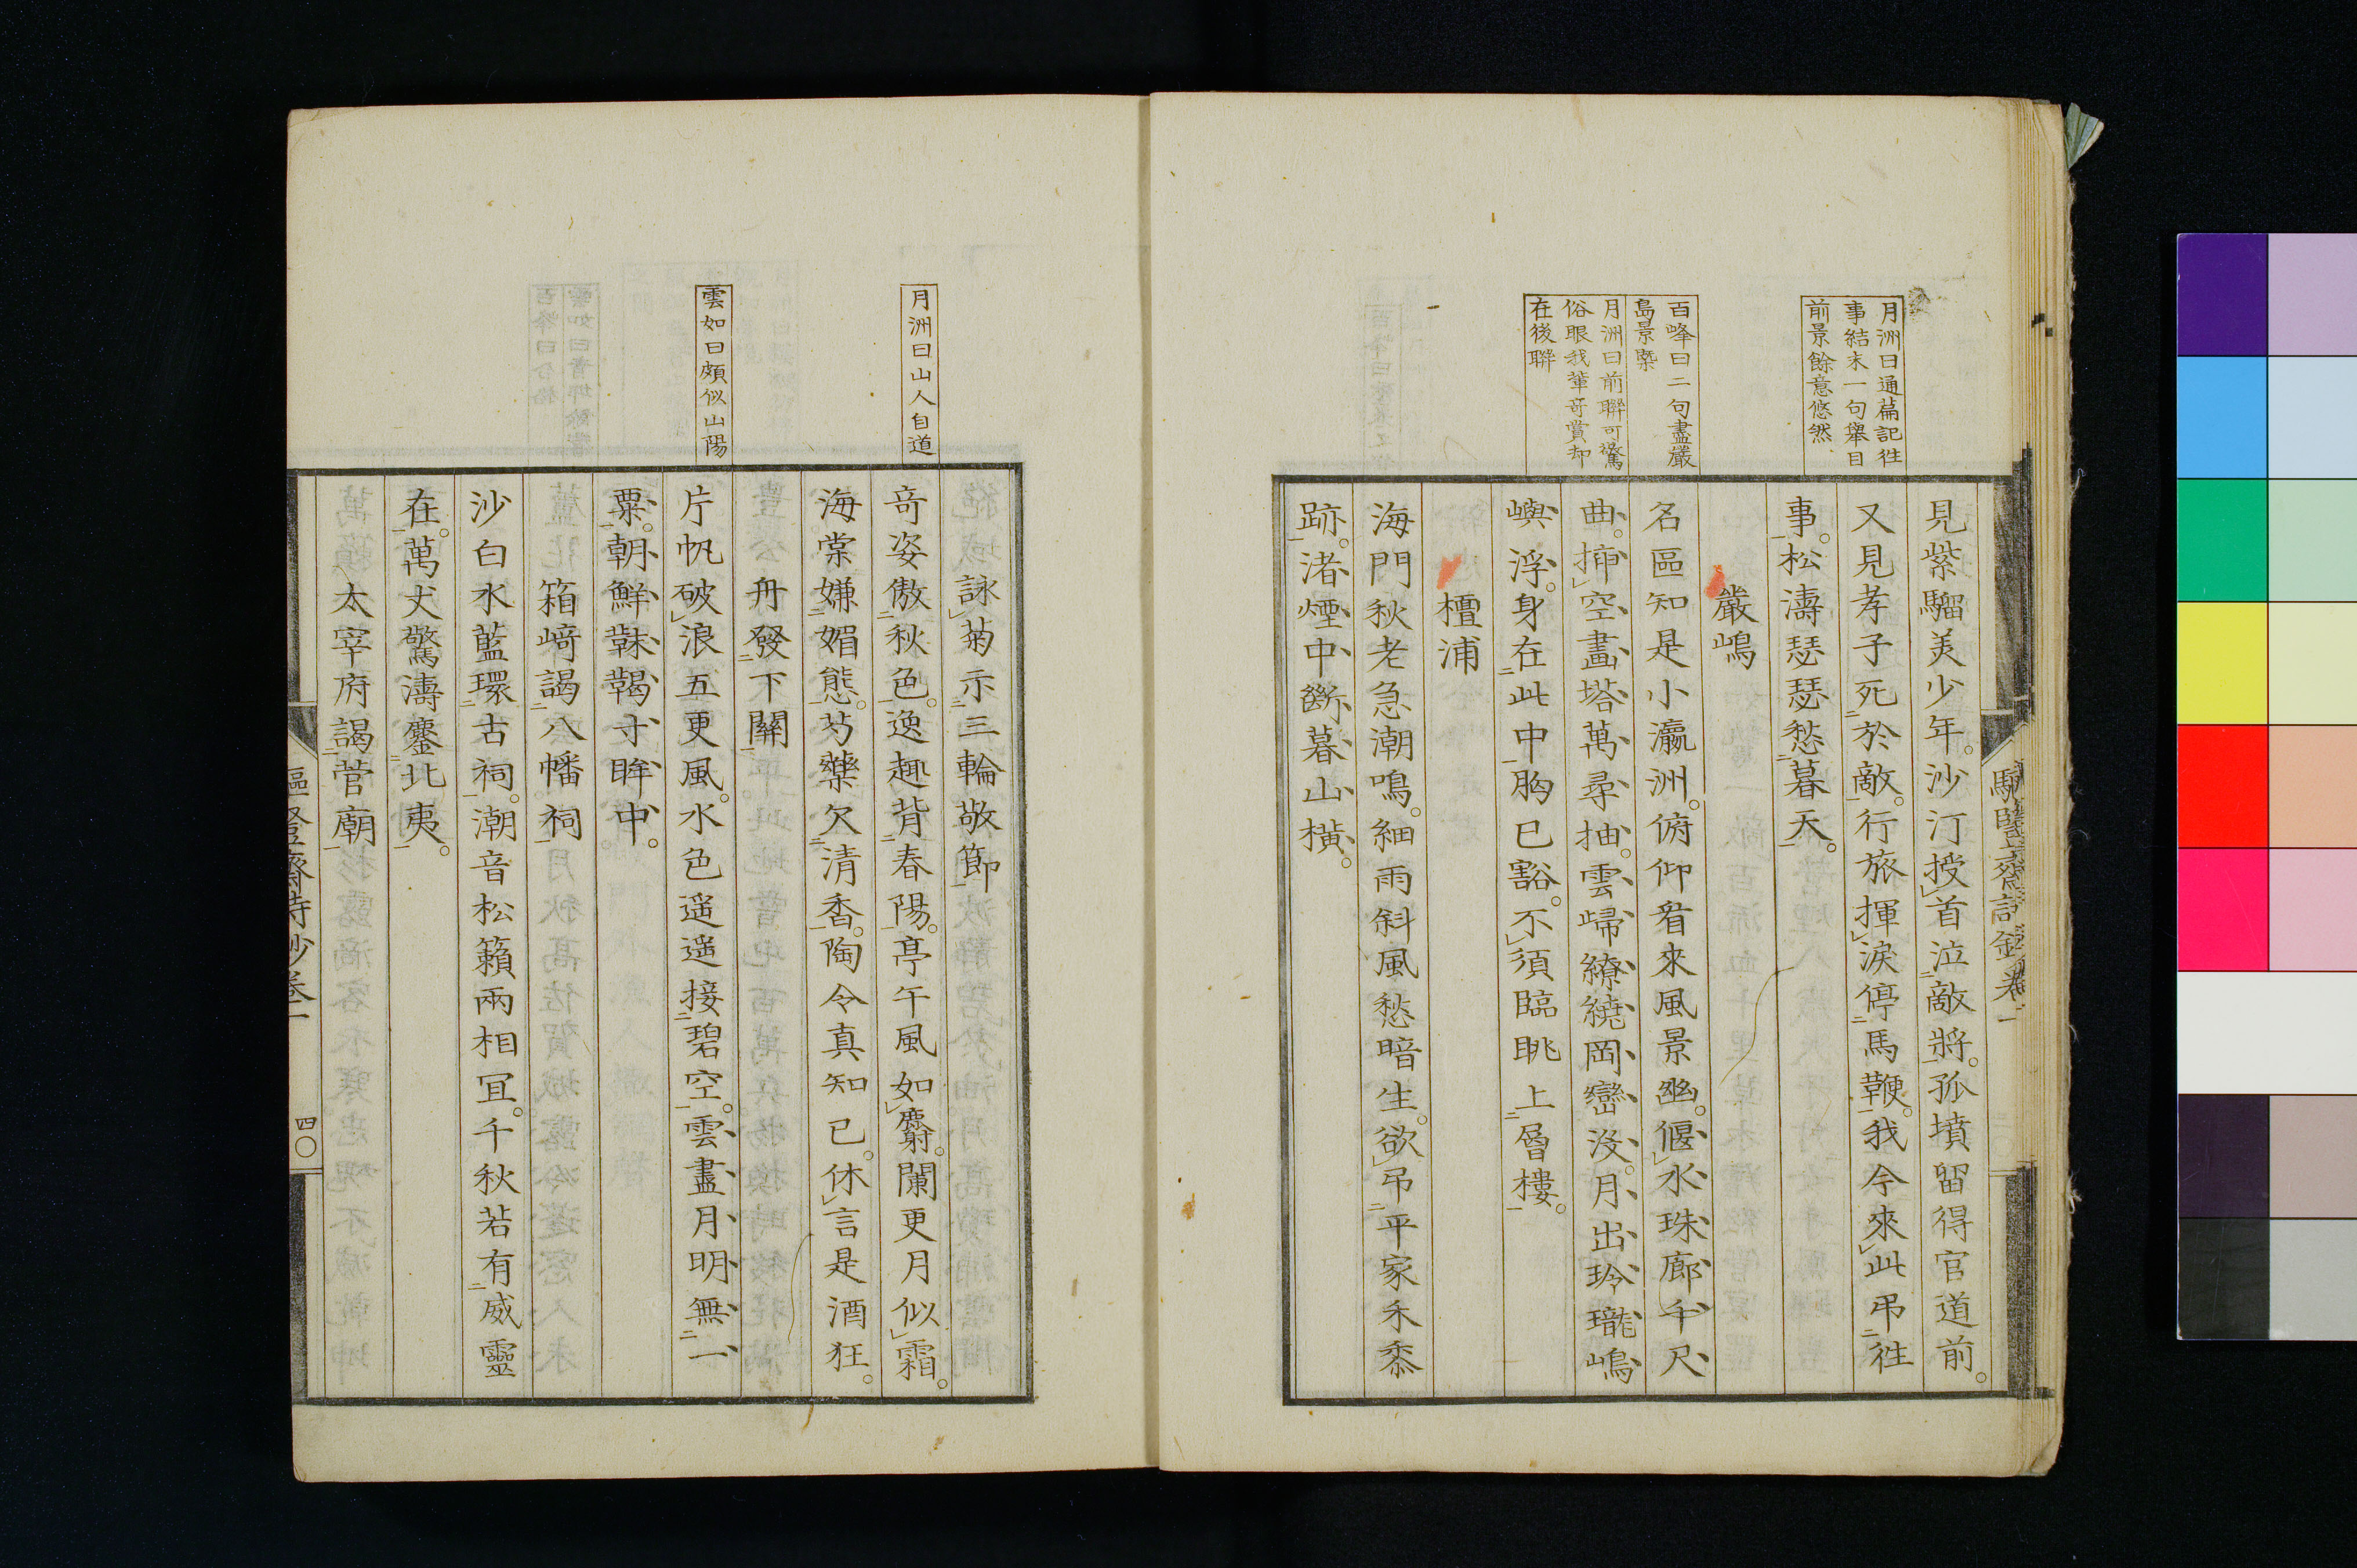 月洲曰通篇記往
事結末一句擧目
前景餘意悠然
百峰曰二句盡嚴
島景槩
月洲曰前聯可驚
俗眼我輩奇賞却
在後聯
見紫騮美少年。沙汀授首泣敵將。孤墳留得官道前。
又見孝子死於敵。行旅揮淚停馬鞭。我今來此弔往
事。松濤瑟瑟愁暮天。
嚴嶋
名區知是小瀛洲。俯仰看來風景幽。偃水珠廊千尺
曲。揷空畫塔萬尋抽。雲歸繚繞岡巒沒。月出玲瓏嶋
嶼浮。身在此中胸已豁。不須臨眺上層樓。
檀浦
海門秋老急潮鳴。細雨斜風愁暗生。欲弔平家禾黍
跡。渚煙中斷暮山橫。
月洲曰山人自道
雲如曰頗似山陽
詠菊示三輪敬節
奇姿傲秋色。逸趣背春陽。亭午風如麝。闌更月似霜。
海棠嫌媚態。芍藥欠清香。陶令真知己。休言是酒狂。
舟發下關
片帆破浪五更風。水色遥遥接碧空。雲盡月明無一
粟。朝鮮靺鞨寸眸中。
箱﨑謁八幡祠
沙白水藍環古祠。潮音松籟兩相宜。千秋若有威靈
在。萬犬驚濤鏖北夷。
太宰府謁菅廟
四〇